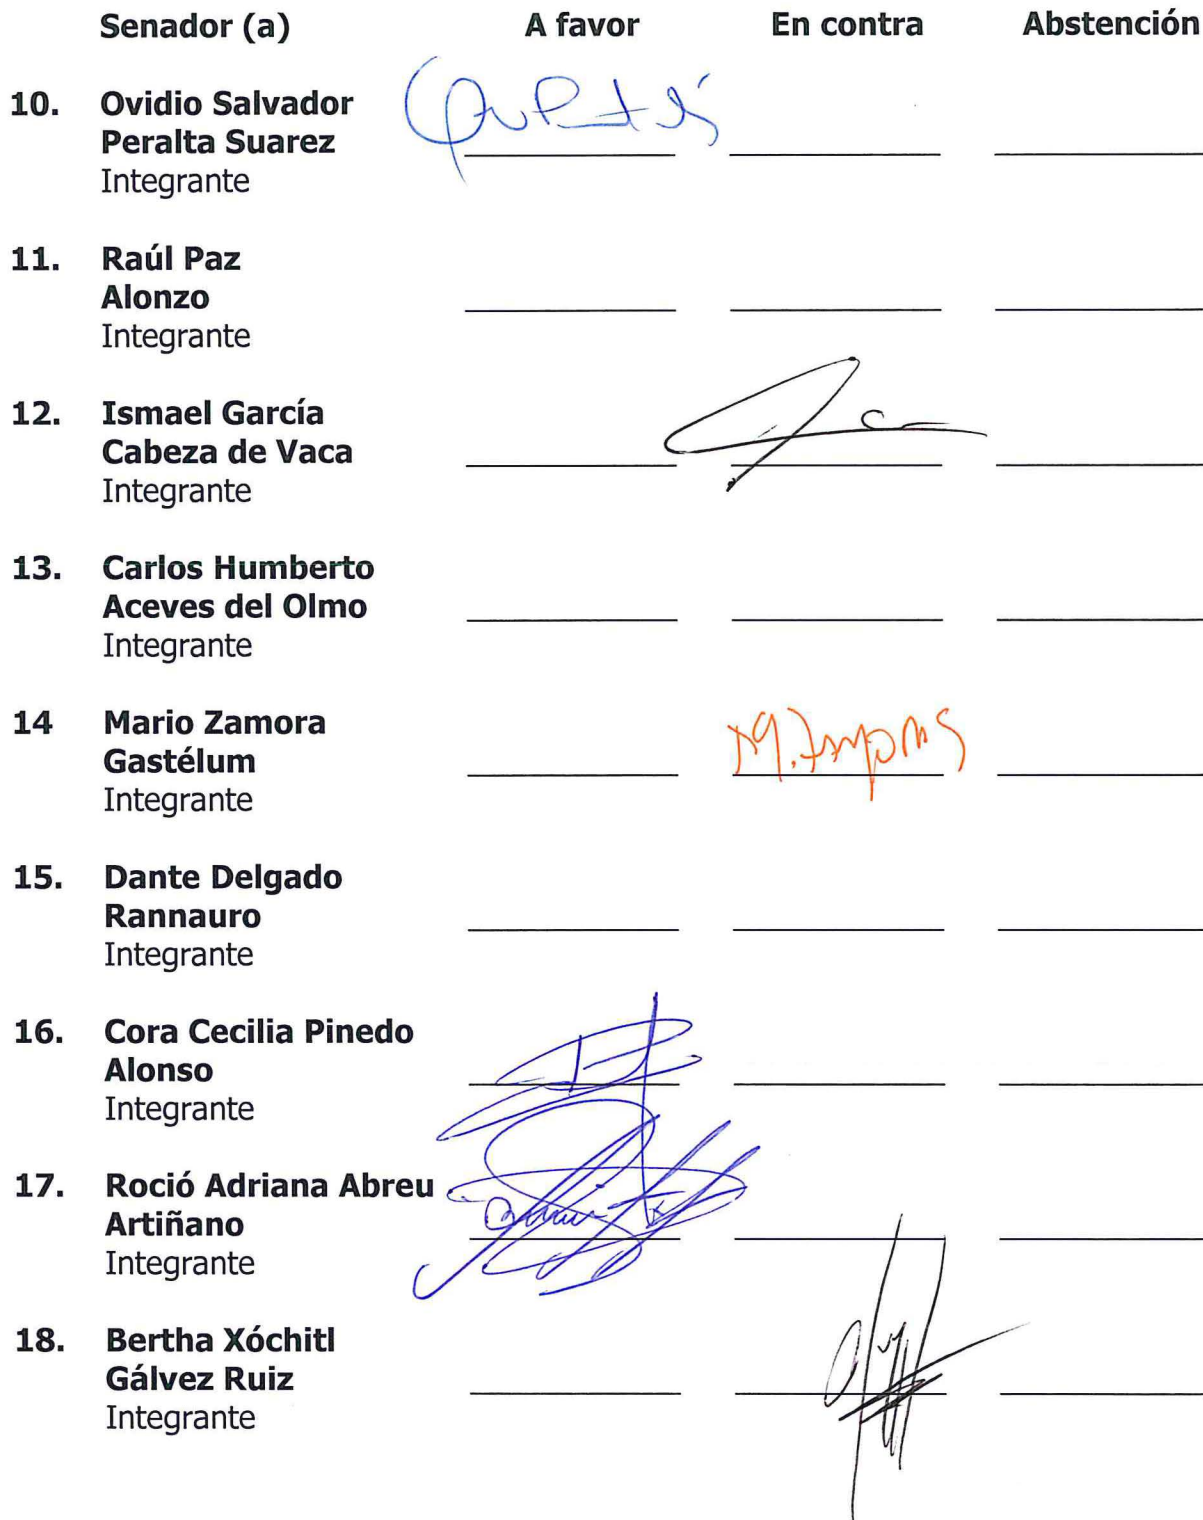 Senador (a) A favor En contra Abstención
10. Ovidio Salvador
Peralta Suarez
Integrante
11. Raúl Paz
Alonzo
Integrante
12. Ismael García
Cabeza de Vaca
Integrante
13. Carlos Humberto
Aceves del Olmo
Integrante
14 Mario Zamora
Gastélum
Integrante
15. Dante Delgado
Rannauro
Integrante
16. Cora Cecilia Pinedo
Alonso
Integrante
17. Roció Adriana Abreu
Artiñano
Integrante
18. Bertha Xóchitl
Gálvez Ruiz
Integrante